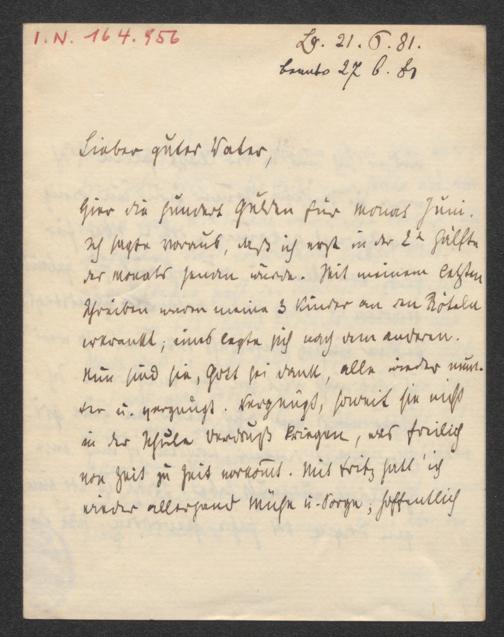 I.N. 164.956
Lg. 21. 6. 81.
beantw 27 6. 81
Lieber guter Vater,
Hier die hundert Gulden für Monat Juni.
Ich sagte voraus, daß ich erst in der 2ten Hälfte
des Monats senden würde. Seit meinem letzten
Schreiben waren meine 3 Kinder an den Röteln
erkrankt; eines legte sich nach dem anderen.
Nun sind sie, Gott sei dank, alle wieder mun-
ter u. vergnügt. Vergnügt, soweit sie nicht
in der Schule Verdruß kriegen, was freilich
von Zeit zu Zeit vorkom̅t. Mit Fritz hatt' ich
wieder allerhand Mühe u. Sorge; hoffentlich